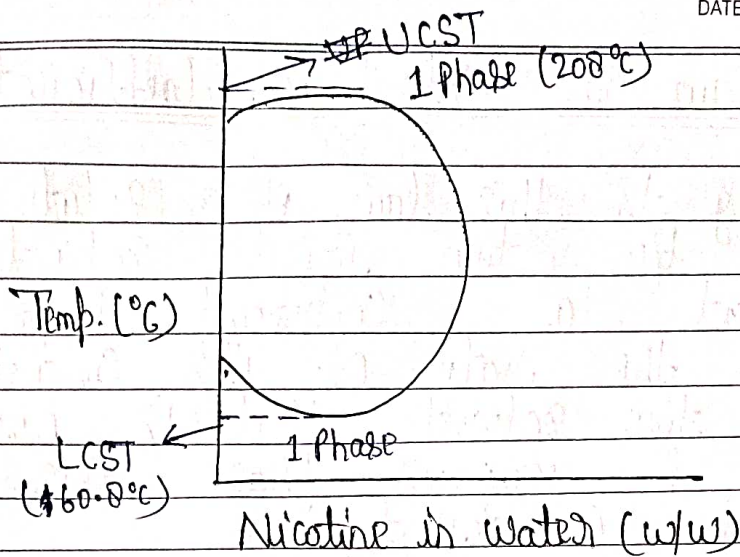 DATE
UCST
1 Phase (208°C)
Temp. (°C)
LCST
(60.8°C)
1 Phase
Nicotine in water (w/w)